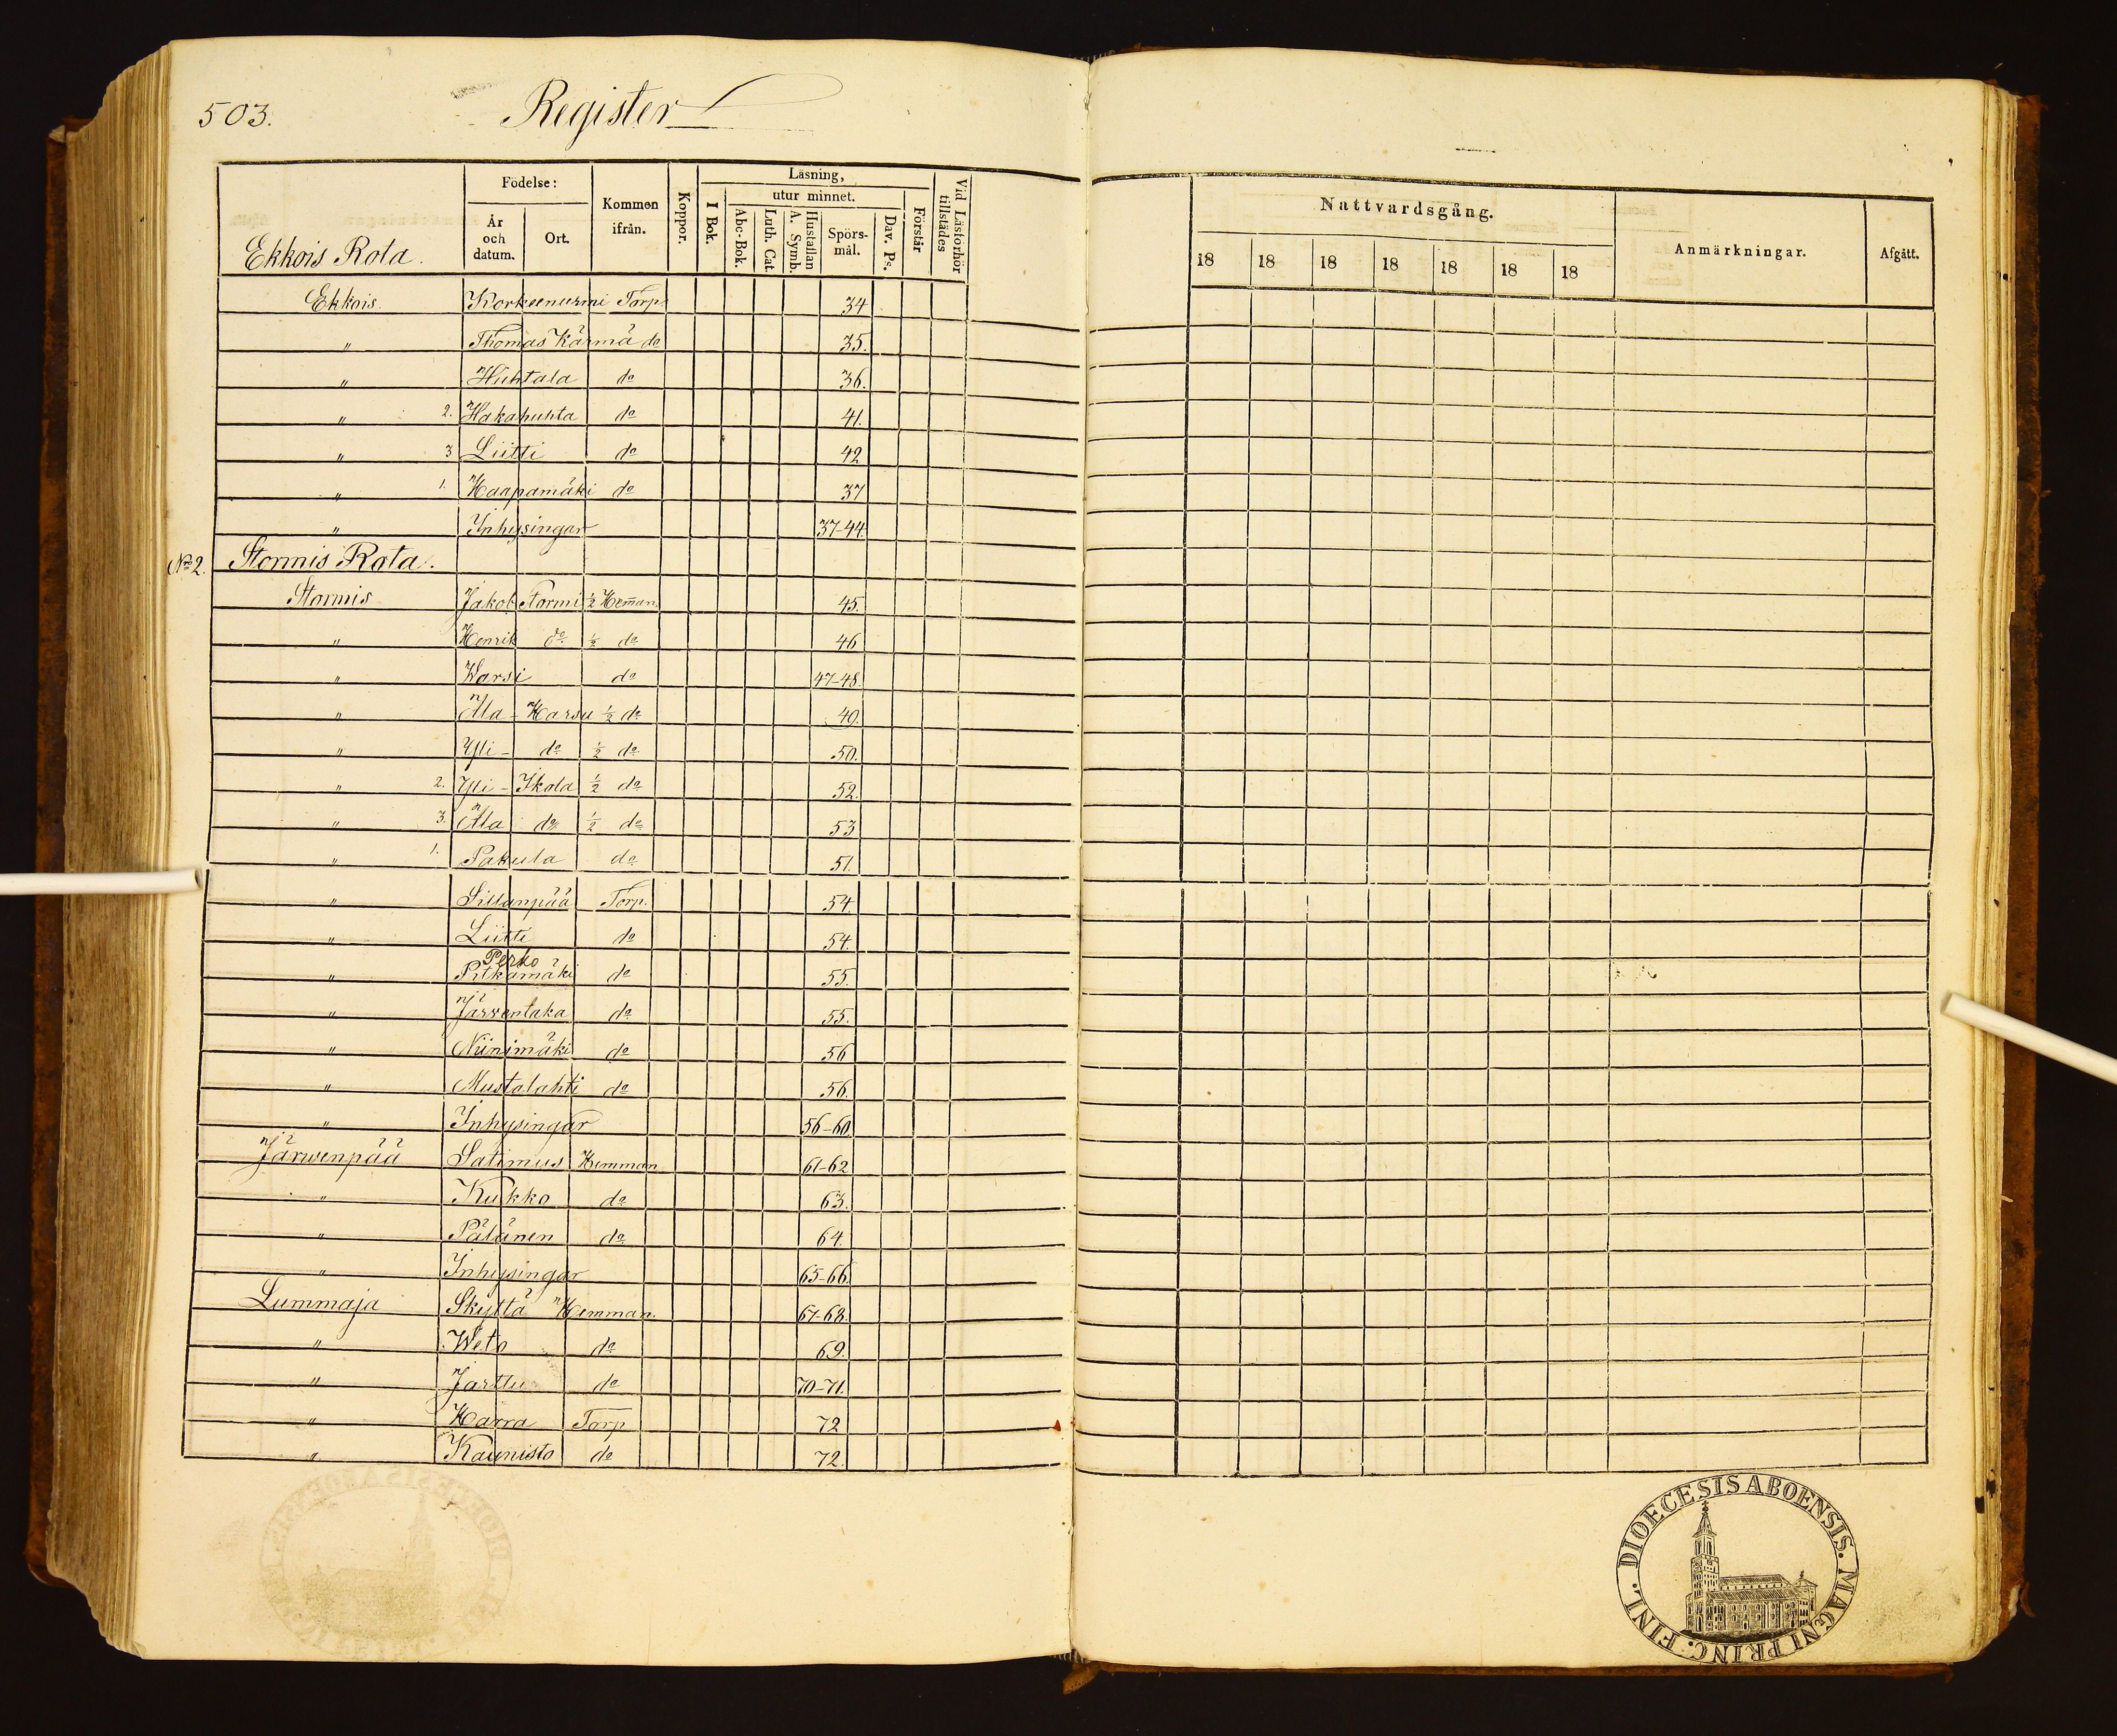 503.
Register
Ekkois Rota.
Födelse:
År och datum.
Ort.
Kommen ifrån.
Koppor.
Läsning,
I Bok.
utur minnet.
Abc-Bok.
Luth. Cat.
Hustaflan A. Symb.
Spörsmål.
Dav. Ps.
Förstår
Vid Läsförhör tillstädes
Nattvardsgång.
18 18 18 18 18 18 18
Anmärkningar.
Afgått.
Ekkois Korkeenurmi Torp. 34
" Thomas Kärmä do 35.
" Huhtala do 36.
" 2. Hakahuhta do 41.
" 3 Liitti do 42
" 1. Haapamäki do 37
" Inhysingar 37-44.
No 2. Stormis Rota.
Stormis Jakob Stormi ½ Heman 45.
" Henrik do ½ do 46
" Warsi do 47-48.
" Ala-Harsu ½ do 49.
" Yli- do ½ do 50.
" 2. Yli-Ikola ½ do 52.
" 3. Ala do ½ do 53
" 1. Pakula do 51.
" Sillanpää Torp. 54.
" Liitti do 54.
Perko
" Pitkämäki do 55.
" Järventaka do 55.
" Niinimäki do 56
" Mustalahti do 56.
" Inhysingar 56-60.
Järwenpää Satimus Hemman 61-62
" Kukko do 63.
" Pätänen do 64.
" Inhysingar 65-66.
Lummaja Skyttä Hemman. 67-68.
" Weto do 69.
" Jarttu do 70-71.
" Harra Torp 72
" Kaunisto do 72.
DIOECESIS ABOENSIS. MAGNI PRINC. FINL.